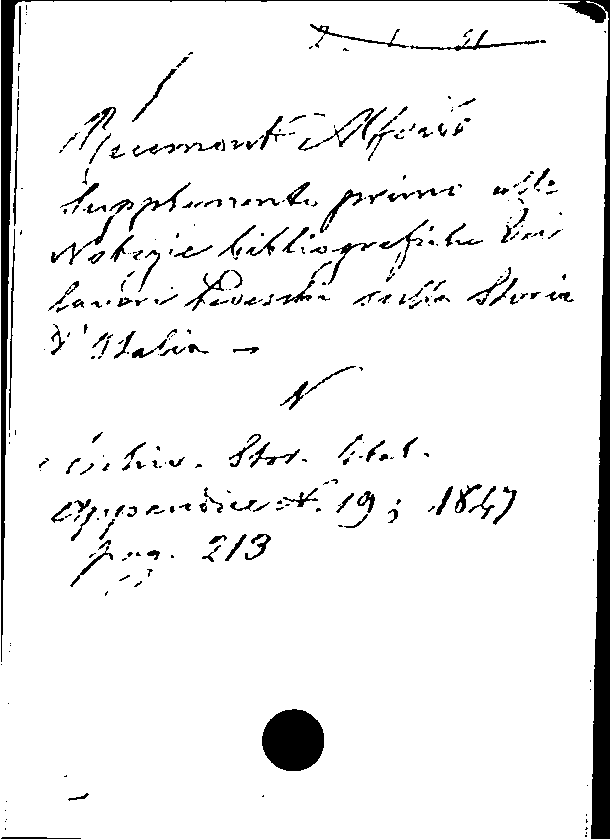 Reumont Alfonso
Supplemento primo alle
Notizie bibliografiche dei
lavori tedeschi sulla Storia
d'Italia —
N
Archiv. Stor. Ital.
Appendice N. 19; 1847
pag. 213